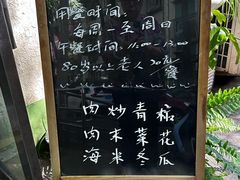 用餐时间:
每周一至周日
午餐时间:11:00-13:00
80岁以上老人 20元/餐
肉炒青椒
肉末菜花
海米冬瓜